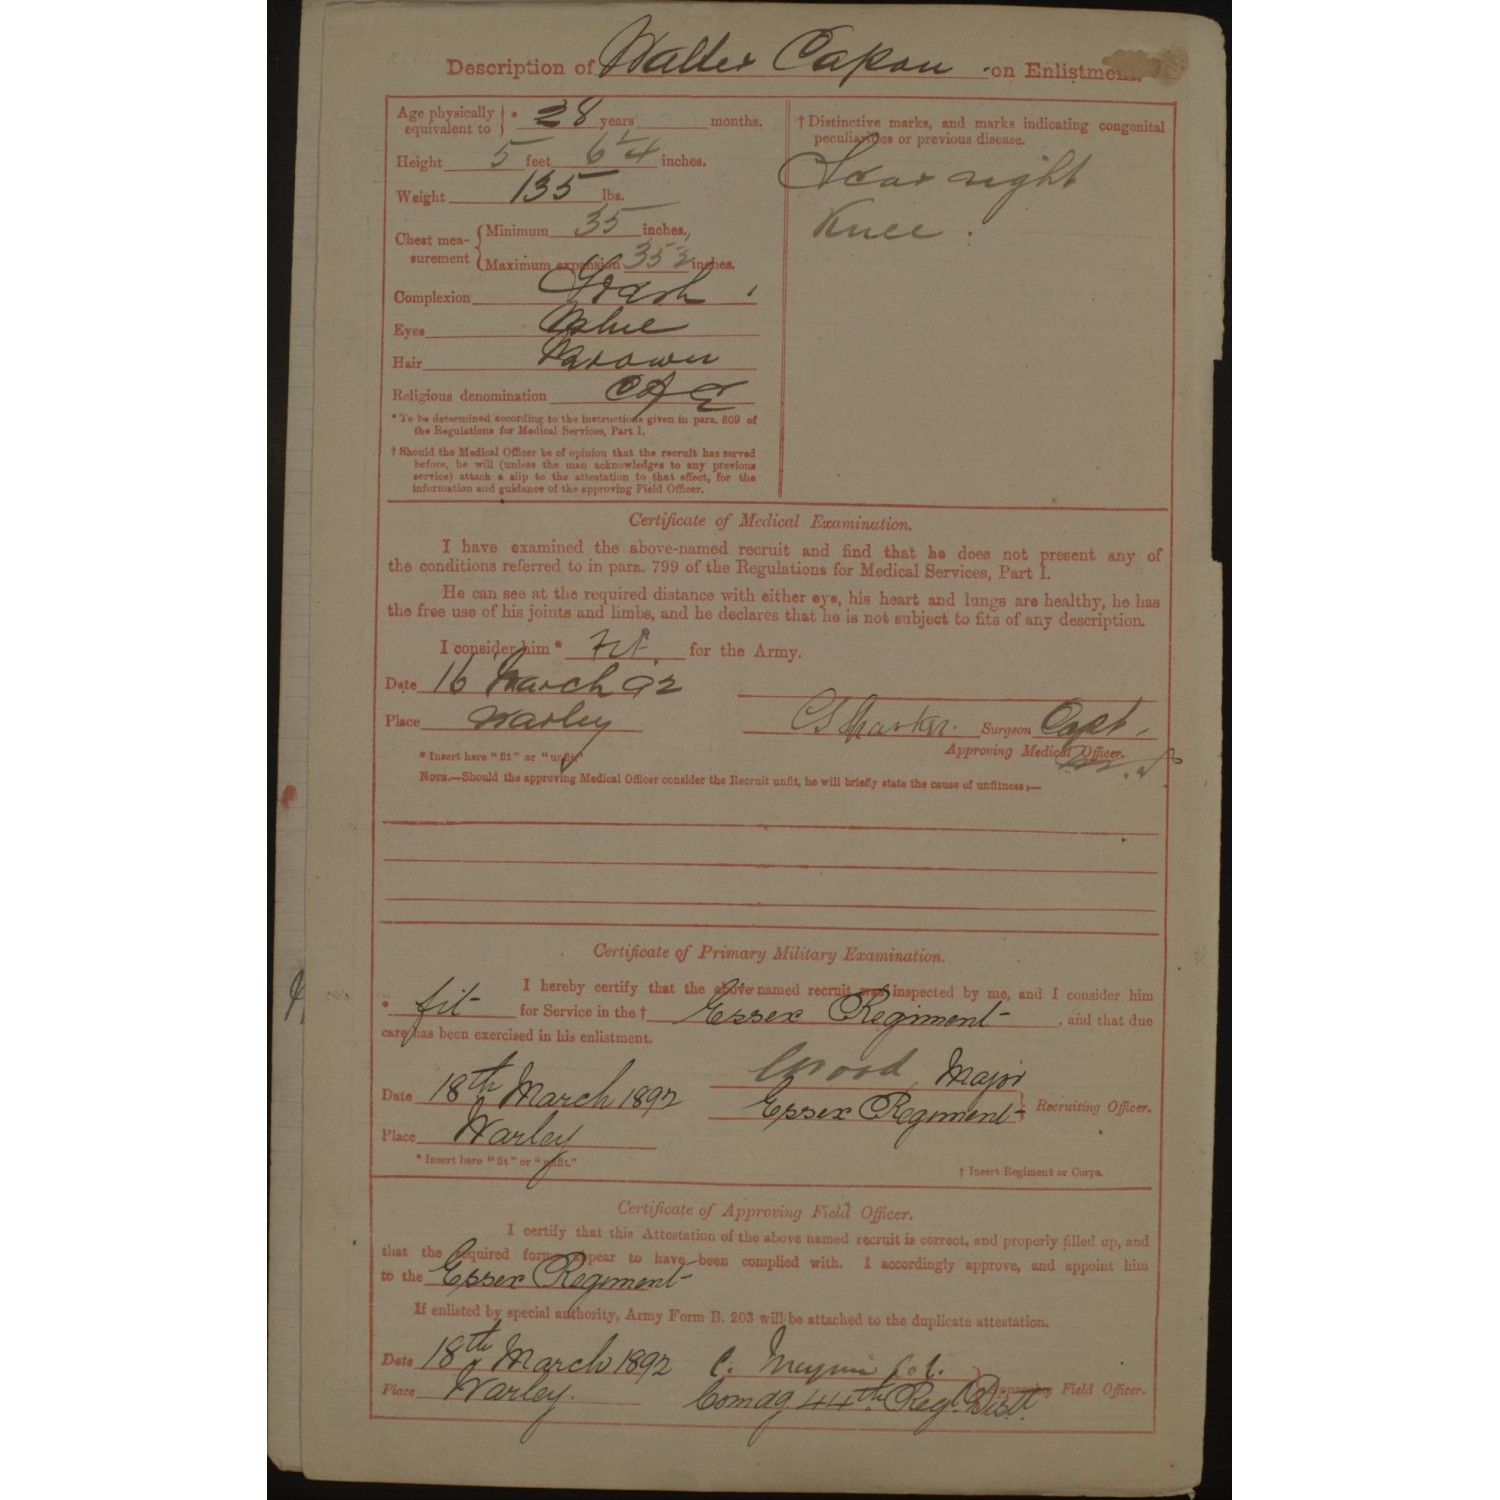 Description of Walter Capon on Enlistment.
Age physically equivalent to } * 28 years months.
Height 5 feet 6 1/4 inches.
Weight 135 lbs.
Chest measurement { Minimum 35 inches.
Maximum expansion 35 1/2 inches.
Complexion Fresh
Eyes Blue
Hair Brown
Religious denomination C of E
* To be determined according to the instructions given in para. 809 of
the Regulations for Medical Services, Part I.
† Should the Medical Officer be of opinion that the recruit has served
before, he will (unless the man acknowledges to any previous
service) attach a slip to the attestation to that effect, for the
information and guidance of the approving Field Officer.
† Distinctive marks, and marks indicating congenital
peculiarities or previous disease.
Scar right
Knee.
Certificate of Medical Examination.
I have examined the above-named recruit and find that he does not present any of
the conditions referred to in para. 799 of the Regulations for Medical Services, Part I.
He can see at the required distance with either eye, his heart and lungs are healthy, he has
the free use of his joints and limbs, and he declares that he is not subject to fits of any description.
I consider him * Fit for the Army.
Date 16 March 92
Place Warley Surgeon Capt.
Approving Medical Officer.
* Insert here "fit" or "unfit"
NOTE.—Should the approving Medical Officer consider the Recruit unfit, he will briefly state the cause of unfitness:—
Certificate of Primary Military Examination.
I hereby certify that the above named recruit was inspected by me, and I consider him
* fit for Service in the † Essex Regiment, and that due
care has been exercised in his enlistment.
Wood, Major
Date 18th March 1892 Essex Regiment } Recruiting Officer.
Place Warley
* Insert here "fit" or "unfit." † Insert Regiment or Corps.
Certificate of Approving Field Officer.
I certify that this Attestation of the above named recruit is correct, and properly filled up, and
that the required forms appear to have been complied with. I accordingly approve, and appoint him
to the Essex Regiment
If enlisted by special authority, Army Form B. 203 will be attached to the duplicate attestation.
Date 18th March 1892 C. Col. } Approving Field Officer.
Place Warley. Comdg 44th Regl. Distt.